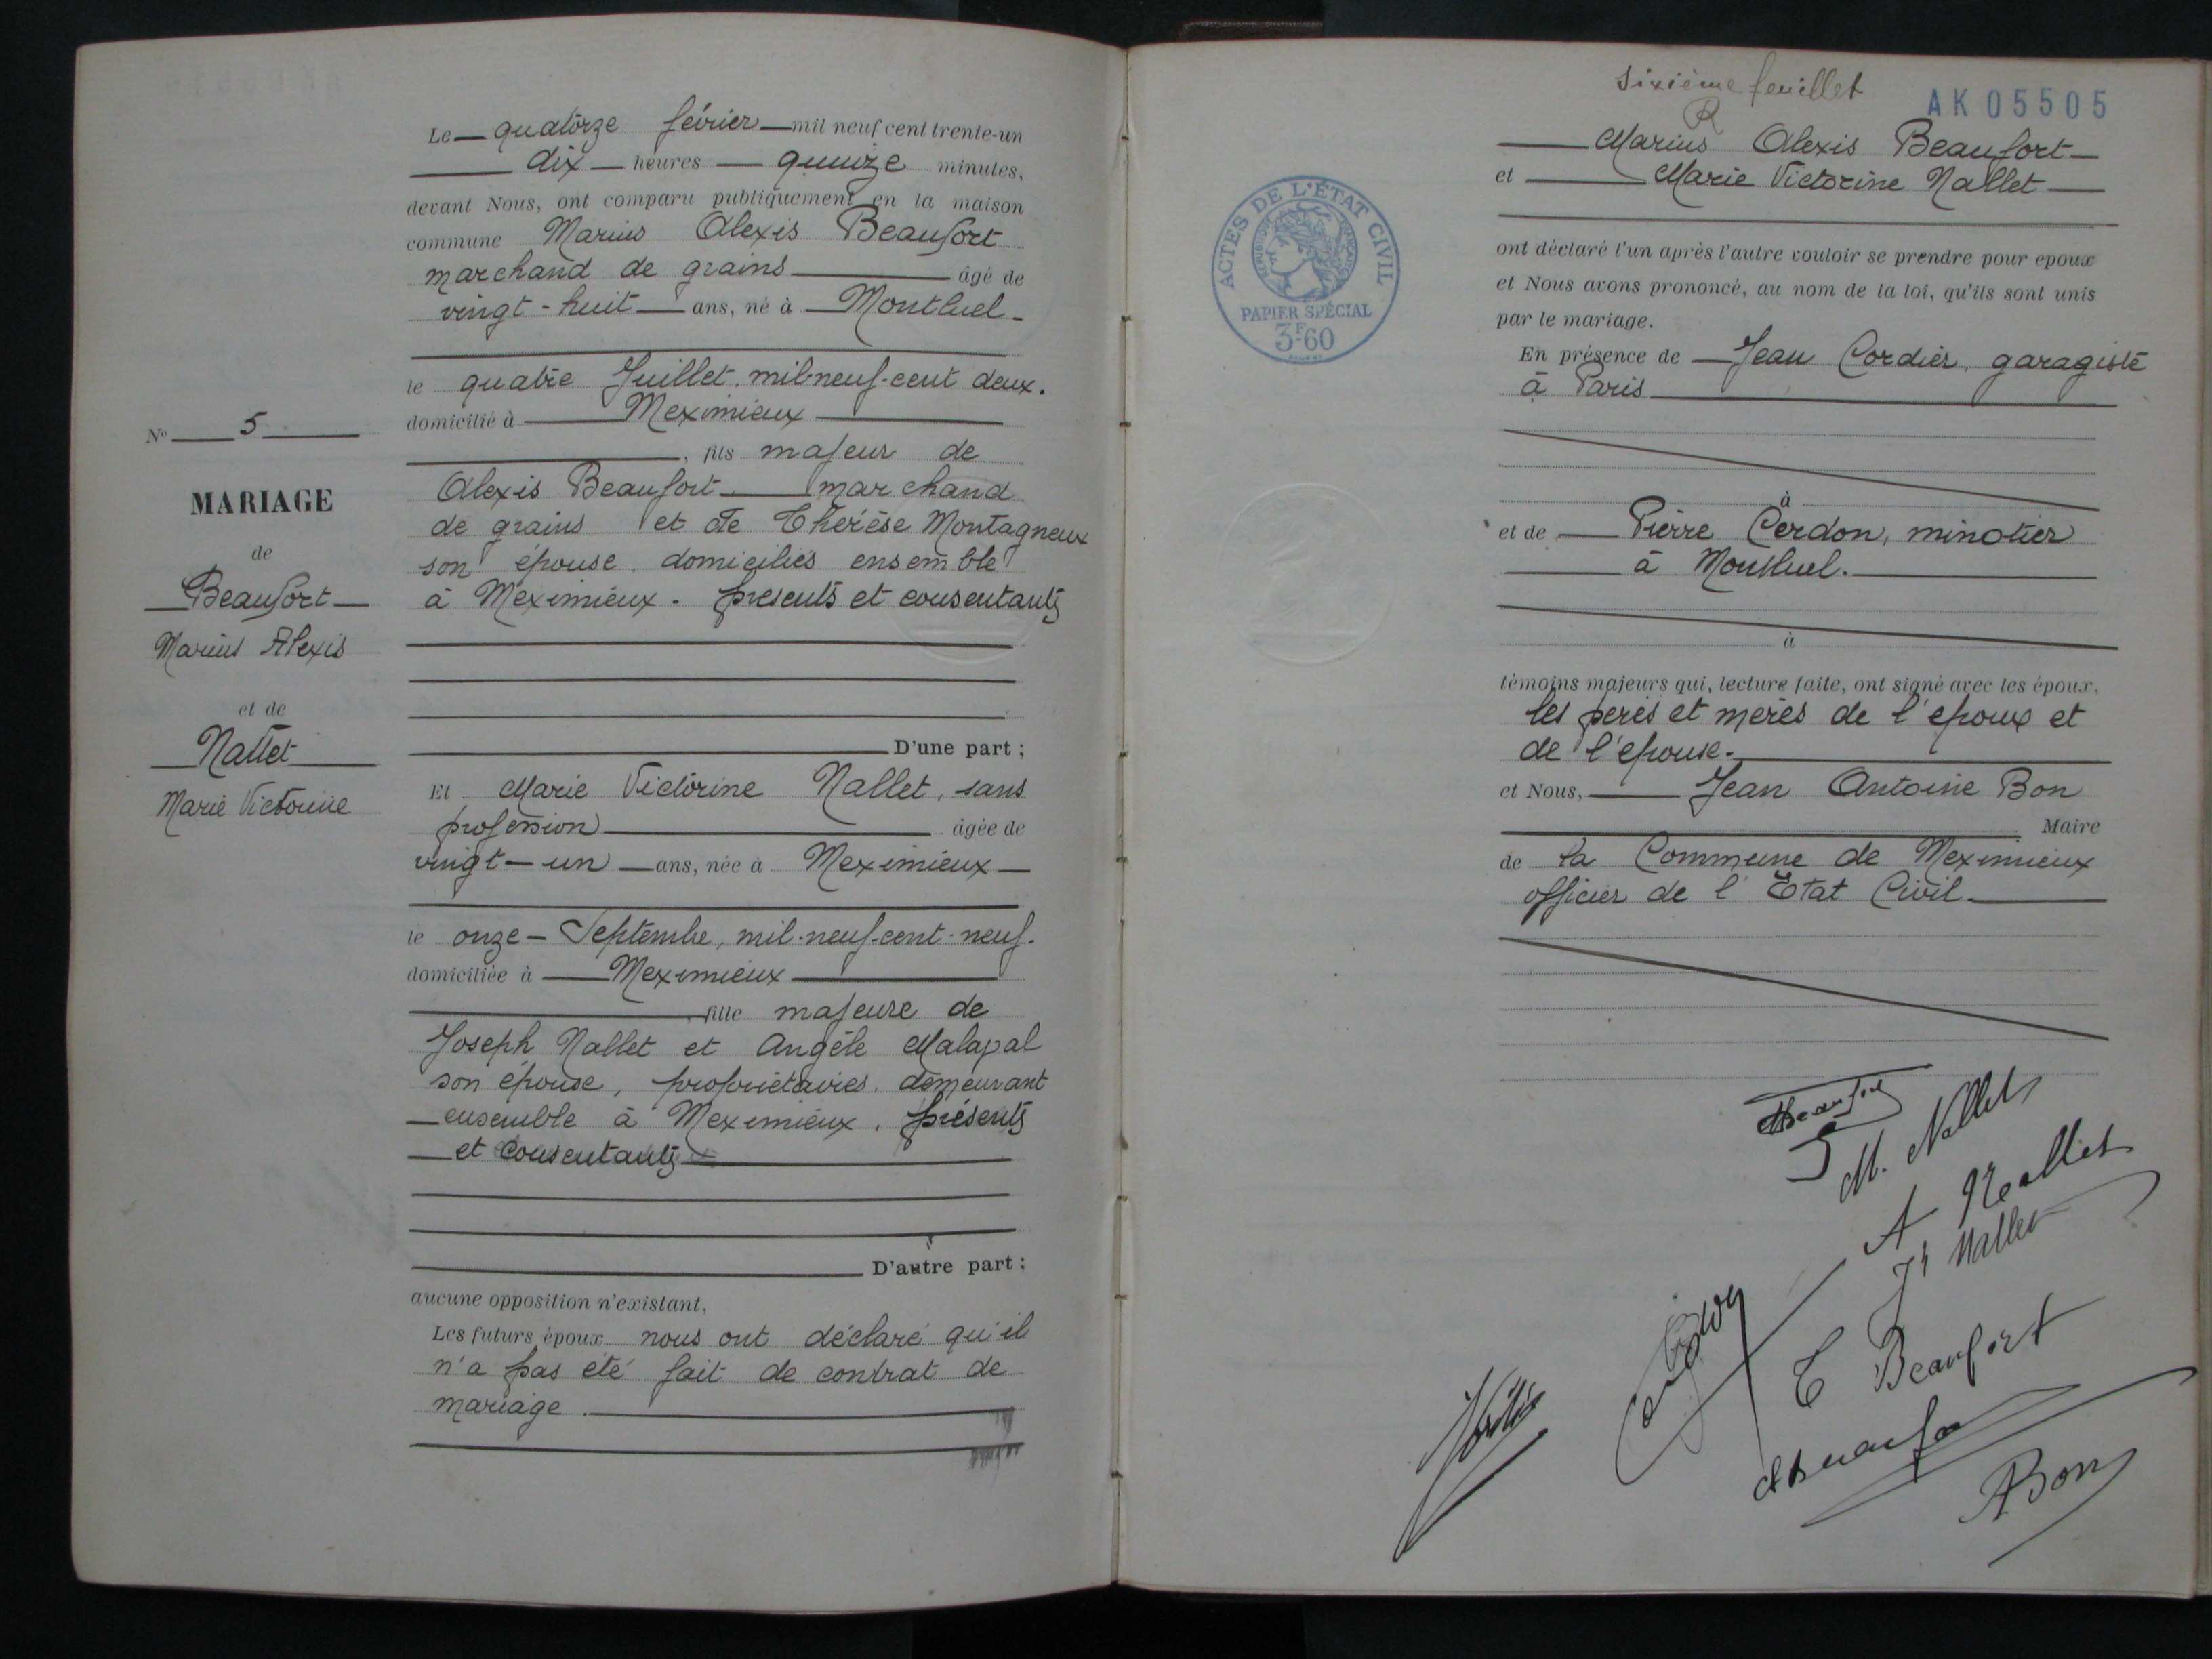 Le quatorze février mil neuf cent trente-un
dix heures quinze minutes,
devant Nous, ont comparu publiquement en la maison
commune Marius Alexis Beaufort
marchand de grains âgé de
vingt-huit ans, né à Montluel
le quatre Juillet mil-neuf-cent deux.
domicilié à Meximieux
, fils majeur de
Alexis Beaufort marchand
de grains et de Thérèse Montagneux
son épouse domiciliés ensemble
à Meximieux. présents et consentants
D'une part ;
Et Marie Victorine Nallet, sans
profession âgée de
vingt-un ans, née à Meximieux
le onze Septembre, mil-neuf-cent-neuf.
domiciliée à Meximieux
, fille majeure de
Joseph Nallet et Angèle Malapal
son épouse, propriétaires demeurant
ensemble à Meximieux, présents
et consentants
D'autre part ;
aucune opposition n'existant,
Les futurs époux nous ont déclaré qu'il
n'a pas été fait de contrat de
mariage.
N° 5
MARIAGE
de
Beaufort
Marius Alexis
et de
Nallet
Marie Victorine
Sixième feuillet
R
AK05505
Marius Alexis Beaufort
et Marie Victorine Nallet
ACTES DE L'ÉTAT CIVIL
RÉPUBLIQUE FRANÇAISE
PAPIER SPÉCIAL
3F60
ont déclaré l'un après l'autre vouloir se prendre pour époux
et Nous avons prononcé, au nom de la loi, qu'ils sont unis
par le mariage.
En présence de Jean Cordier, garagiste
à Paris
à
et de Pierre Cerdon, minotier
à Montluel.
à
témoins majeurs qui, lecture faite, ont signé avec les époux,
les pères et mères de l'époux et
de l'épouse.
et Nous, Jean Antoine Bon
Maire
de la Commune de Meximieux
officier de l'Etat Civil
MBeaufort
M. Nallet
A Nallet
Jh Nallet
T Beaufort
ABeaufort
ABon